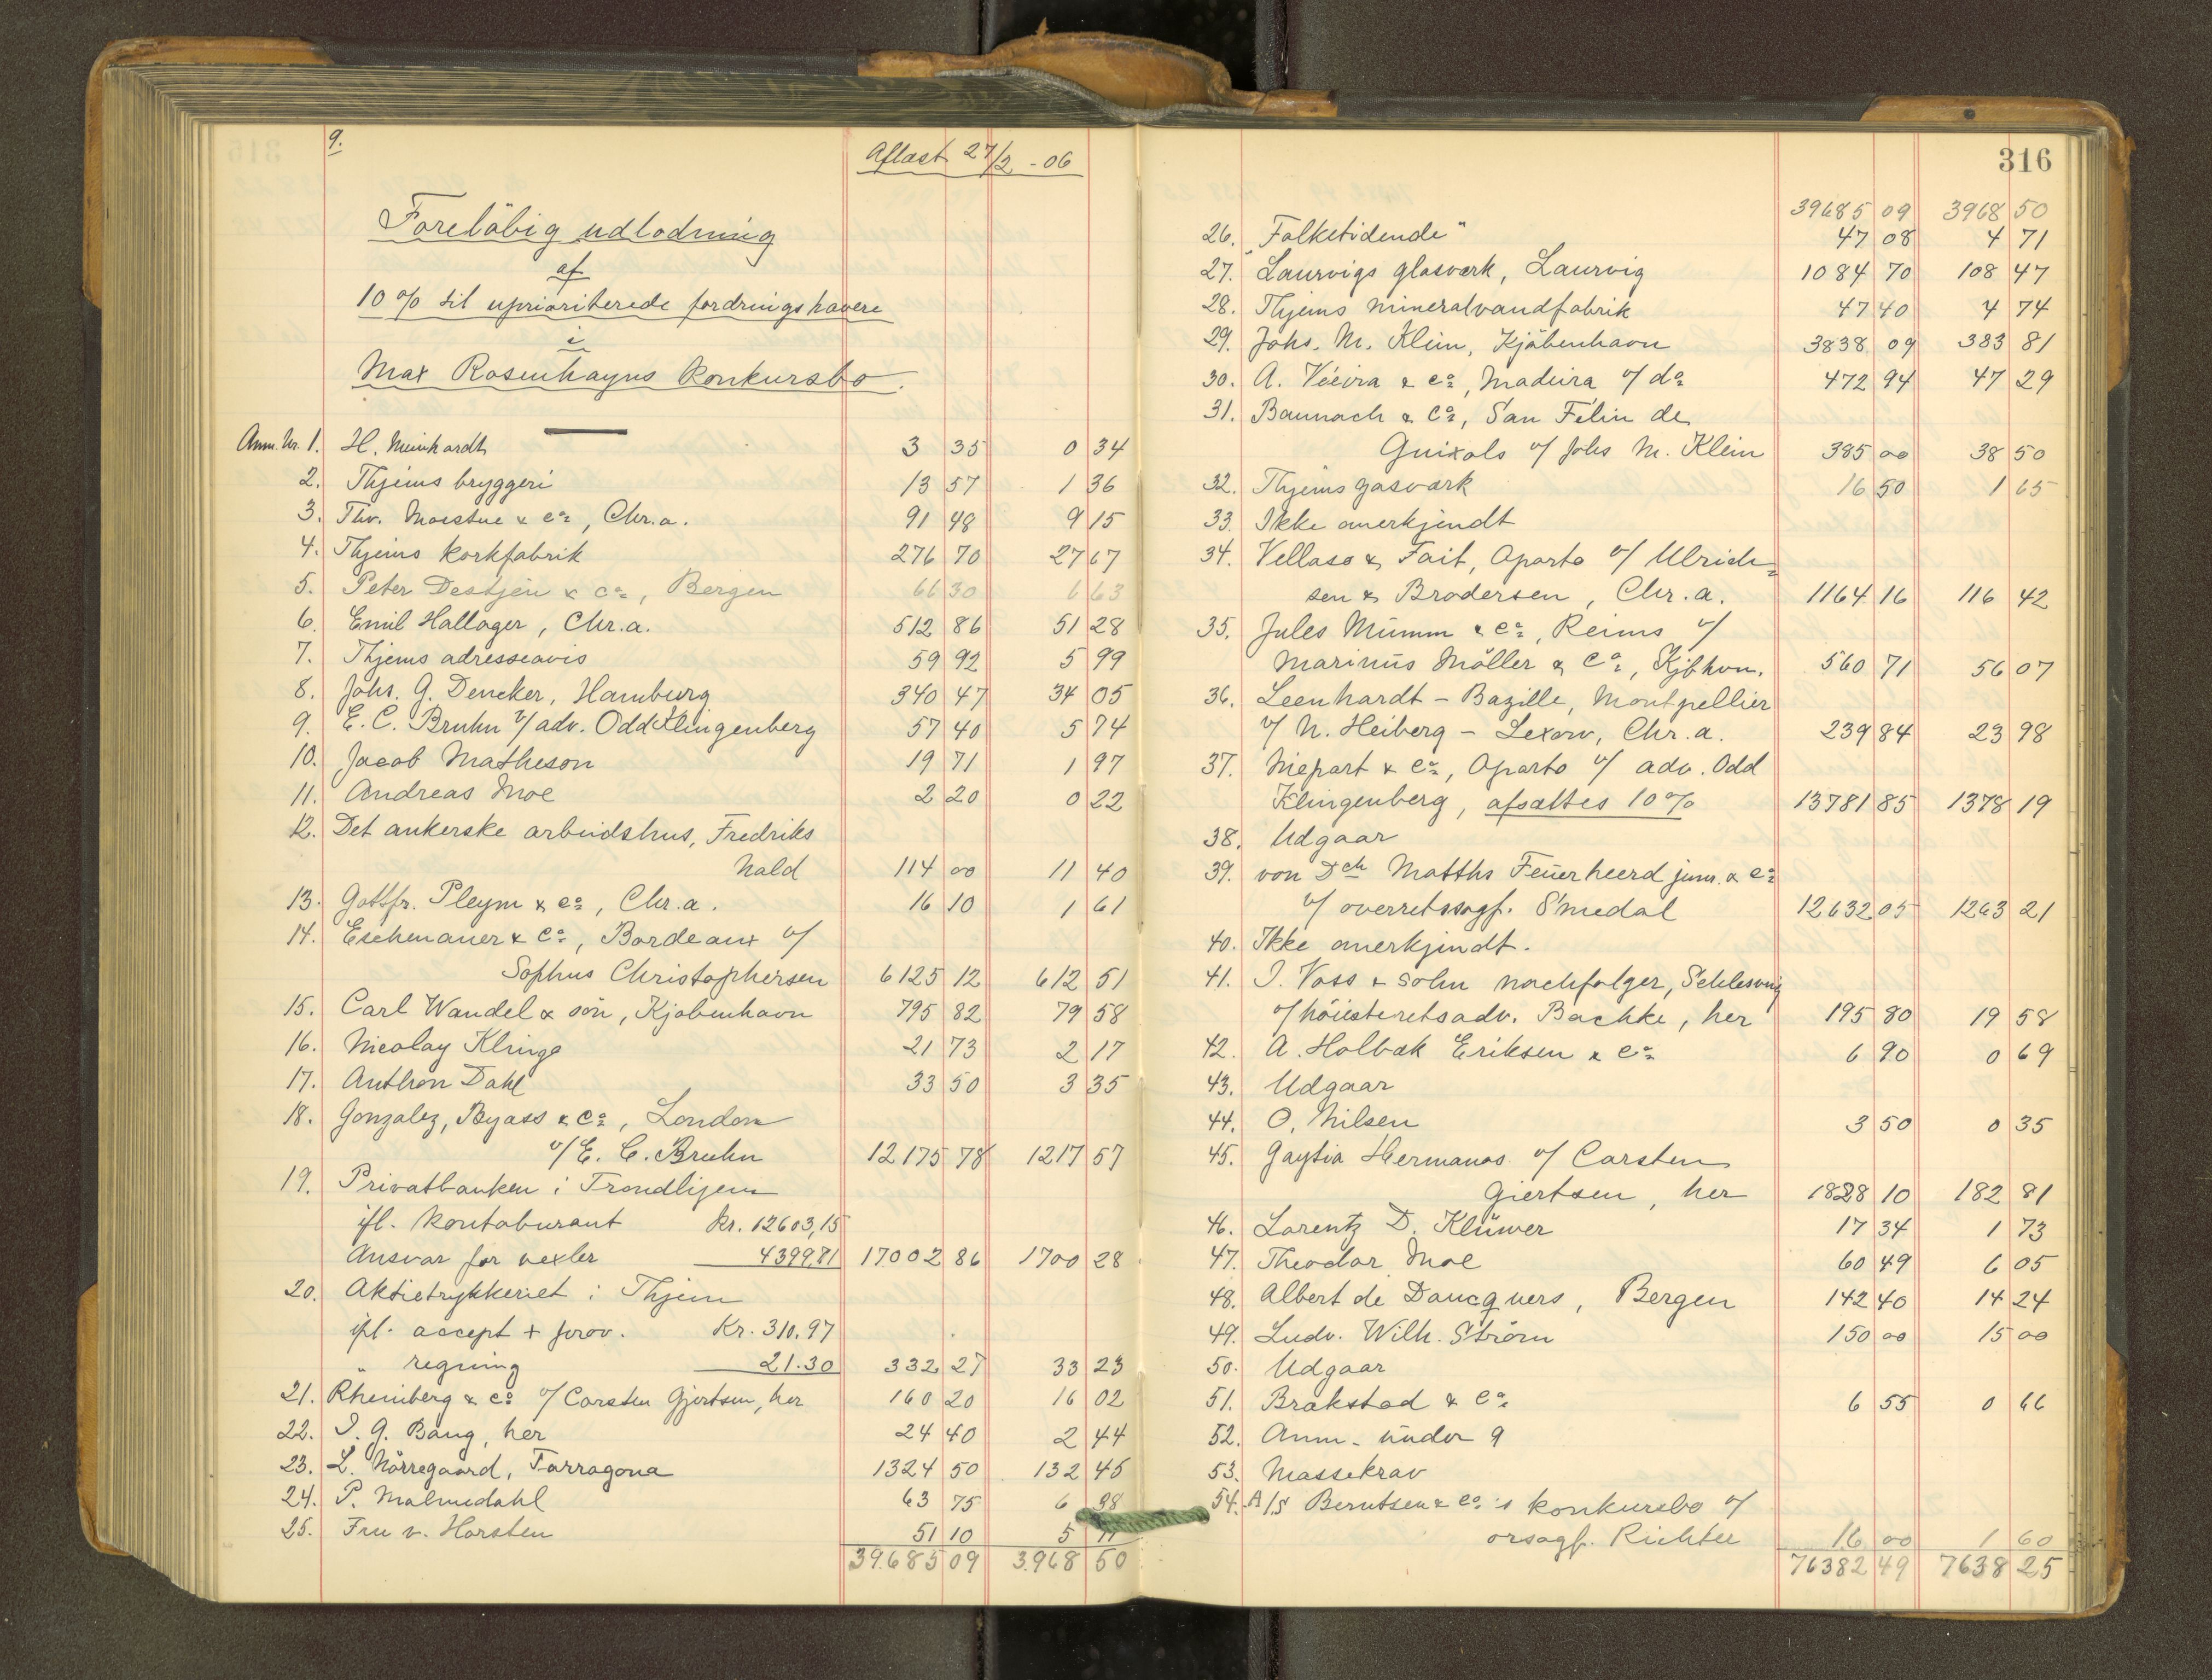 9.
Aflæst 27/2 - 06
Foreløbig udlodning
af
10 % til uprioriterede fordringshavere
i
Max Rosenhayns konkursbo.
Anm. Nr. 1. H. Meinhardt 3 35 0 34
2. Thjems bryggeri 13 57 1 36
3. Thv. Moestue & Co, Chr.a. 91 48 9 15
4. Thjems korkfabrik 276 70 27 67
5. Peter Destjen & Co, Bergen 66 30 6 63
6. Emil Hallager, Chr.a. 512 86 51 28
7. Thjems adresseavis 59 92 5 99
8. Johs. G. Dencker, Hamburg 340 47 34 05
9. E. C. Bruhn v/ adv. Odd Klingenberg 57 40 5 74
10. Jacob Matheson 19 71 1 97
11. Andreas Moe 2 20 0 22
12. Det ankerske arbeidshus, Fredriks
hald 114 00 11 40
13. Gottfr. Pleym & Co, Chr.a. 16 10 1 61
14. Eschenauer & Co, Bordeaux v/
Sophus Christophersen 6125 12 612 51
15. Carl Wandel & søn, Kjøbenhavn 795 82 79 58
16. Nicolay Klinge 21 73 2 17
17. Anthon Dahl 33 50 3 35
18. Gonzalez, Byass & Co, London
v/ E. C. Bruhn 12175 78 1217 57
19. Privatbanken i Trondhjem
ifl. kontokurant Kr. 12603,15
Ansvar for vexler 4399,81 17002 86 1700 28
20. Aktietrykkeriet i Thjem
ifl. accept + prov. Kr. 310.97
" regning 21.30 332 27 33 23
21. Rheinberg & Co v/ Carsten Gjertsen, her 160 20 16 02
22. I. G. Bang, her 24 40 2 44
23. L. Nörregaard, Tarragona 1324 50 132 45
24. P. Malmedahl 63 75 6 38
25. Fru v. Horsten 51 10 5 11
39685 09 3968 50
316
39685 09 3968 50
26. "Folketidende" 47 08 4 71
27. Laurvigs glasværk, Laurvig 1084 70 108 47
28. Thjems mineralvandfabrik 47 40 4 74
29. Johs. M. Klein, Kjöbenhavn 3838 09 383 81
30. A. Vieira & Co, Madeira v/ do 472 94 47 29
31. Baunach & Co, San Félin de
Guixols v/ Johs M. Klein 385 00 38 50
32. Thjems gasværk 16 50 1 65
33. Ikke anerkjendt
34. Vellaso & Tait, Oporto v/ Ulrich=
sen & Brodersen, Chr.a. 1164 16 116 42
35. Jules Mumm & Co, Reims v/
Marinus Möller & Co, Kjbhvn. 560 71 56 07
36. Leenhardt - Bazille, Montpellier
v/ N. Heiberg - Lexow, Chr.a. 239 84 23 98
37. Niepart & Co, Oporto v/ adv. Odd
Klingenberg, afsættes 10 % 13781 85 1378 19
38. Udgaar
39. von Dch Matths Feuerheerd junr. & Co
v/ overretssagf. Smedal 12632 05 1263 21
40. Ikke anerkjendt.
41. I. Voss & sohn nachfolger, Schleswig
v/ höiesteretsadv. Bachke, her 195 80 19 58
42. A. Holbæk Eriksen & Co 6 90 0 69
43. Udgaar
44. O. Nilsen 3 50 0 35
45. Gaytia Hermanos v/ Carsten
Giertsen, her 1828 10 182 81
46. Lorentz D. Klüwer 17 34 1 73
47. Theodor Moe 60 49 6 05
48. Albert de Daucquers, Bergen 142 40 14 24
49. Ludv. Wilh. Ström 150 00 15 00
50. Udgaar
51. Brækstad & Co 6 55 0 66
52. Anm. under 9
53. Massekrav
54. A/S Berntsen & Co's konkursbo v/
orsagf. Richter 16 00 1 60
76382 49 7638 25